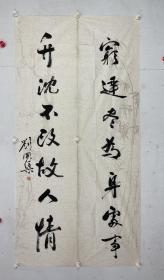 窮達盡為身外事
升沈不改故人情
劉開渠